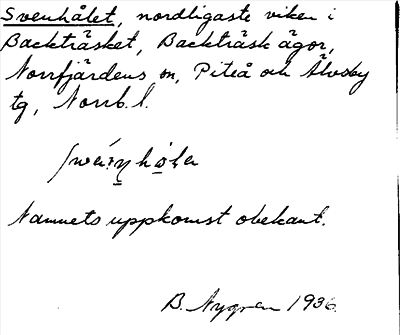 Svenhålet, nordligaste viken i
Backträsket, Backträsk ägor,
Norrfjärdens sn, Piteå och Älvsby
tg, Norrb. l.
Namnets uppkomst obekant.
B. Nygren 1936